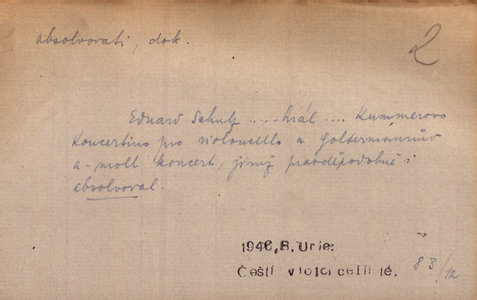 absolvovati, dok.
2
Eduard Schulz ..... hrál .... Kummerovo
Koncertino pro violoncello a Goltermannův
a-moll koncert, jímž pravděpodobně i
absolvoval.
1946, B. Urie:
Čeští violoncellisté. 83/12